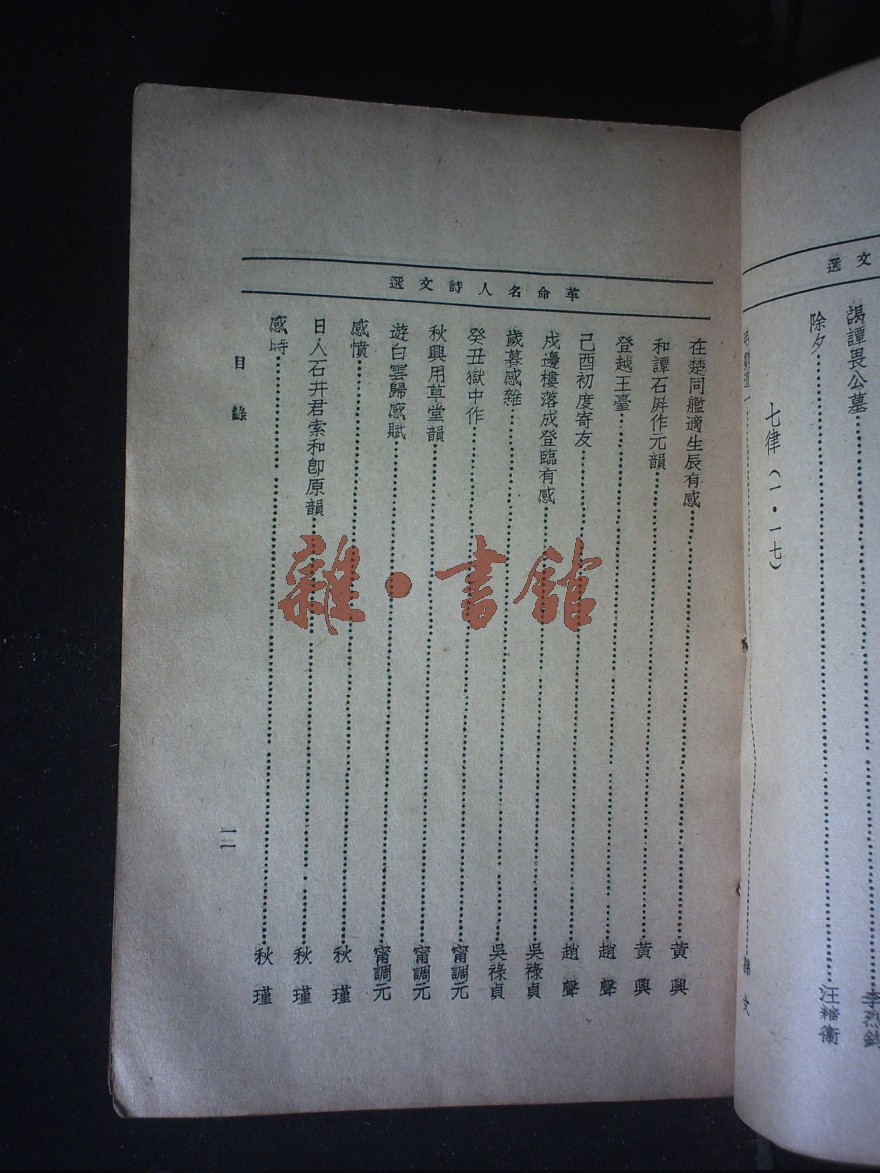 選文
謁譚畏公墓……李烈鈞
除夕……汪精衞
七律(一·一七)
孫文
選文詩人名命革
在楚同艦適生辰有感……黃興
和譚石屏作元韻……黃興
登越王臺……趙聲
己酉初度寄友……趙聲
戍邊樓落成登臨有感……吳祿貞
歲暮感雜……吳祿貞
癸丑獄中作……甯調元
秋興用草堂韻……甯調元
遊白雲歸感賦……甯調元
感憤……秋瑾
日人石井君索和卽原韻……秋瑾
感時……秋瑾
目錄
一二
雜·書館